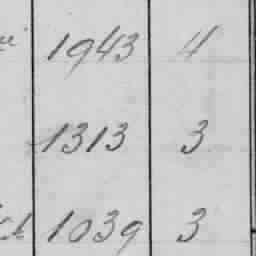 1943 4
1313 3
1039 3